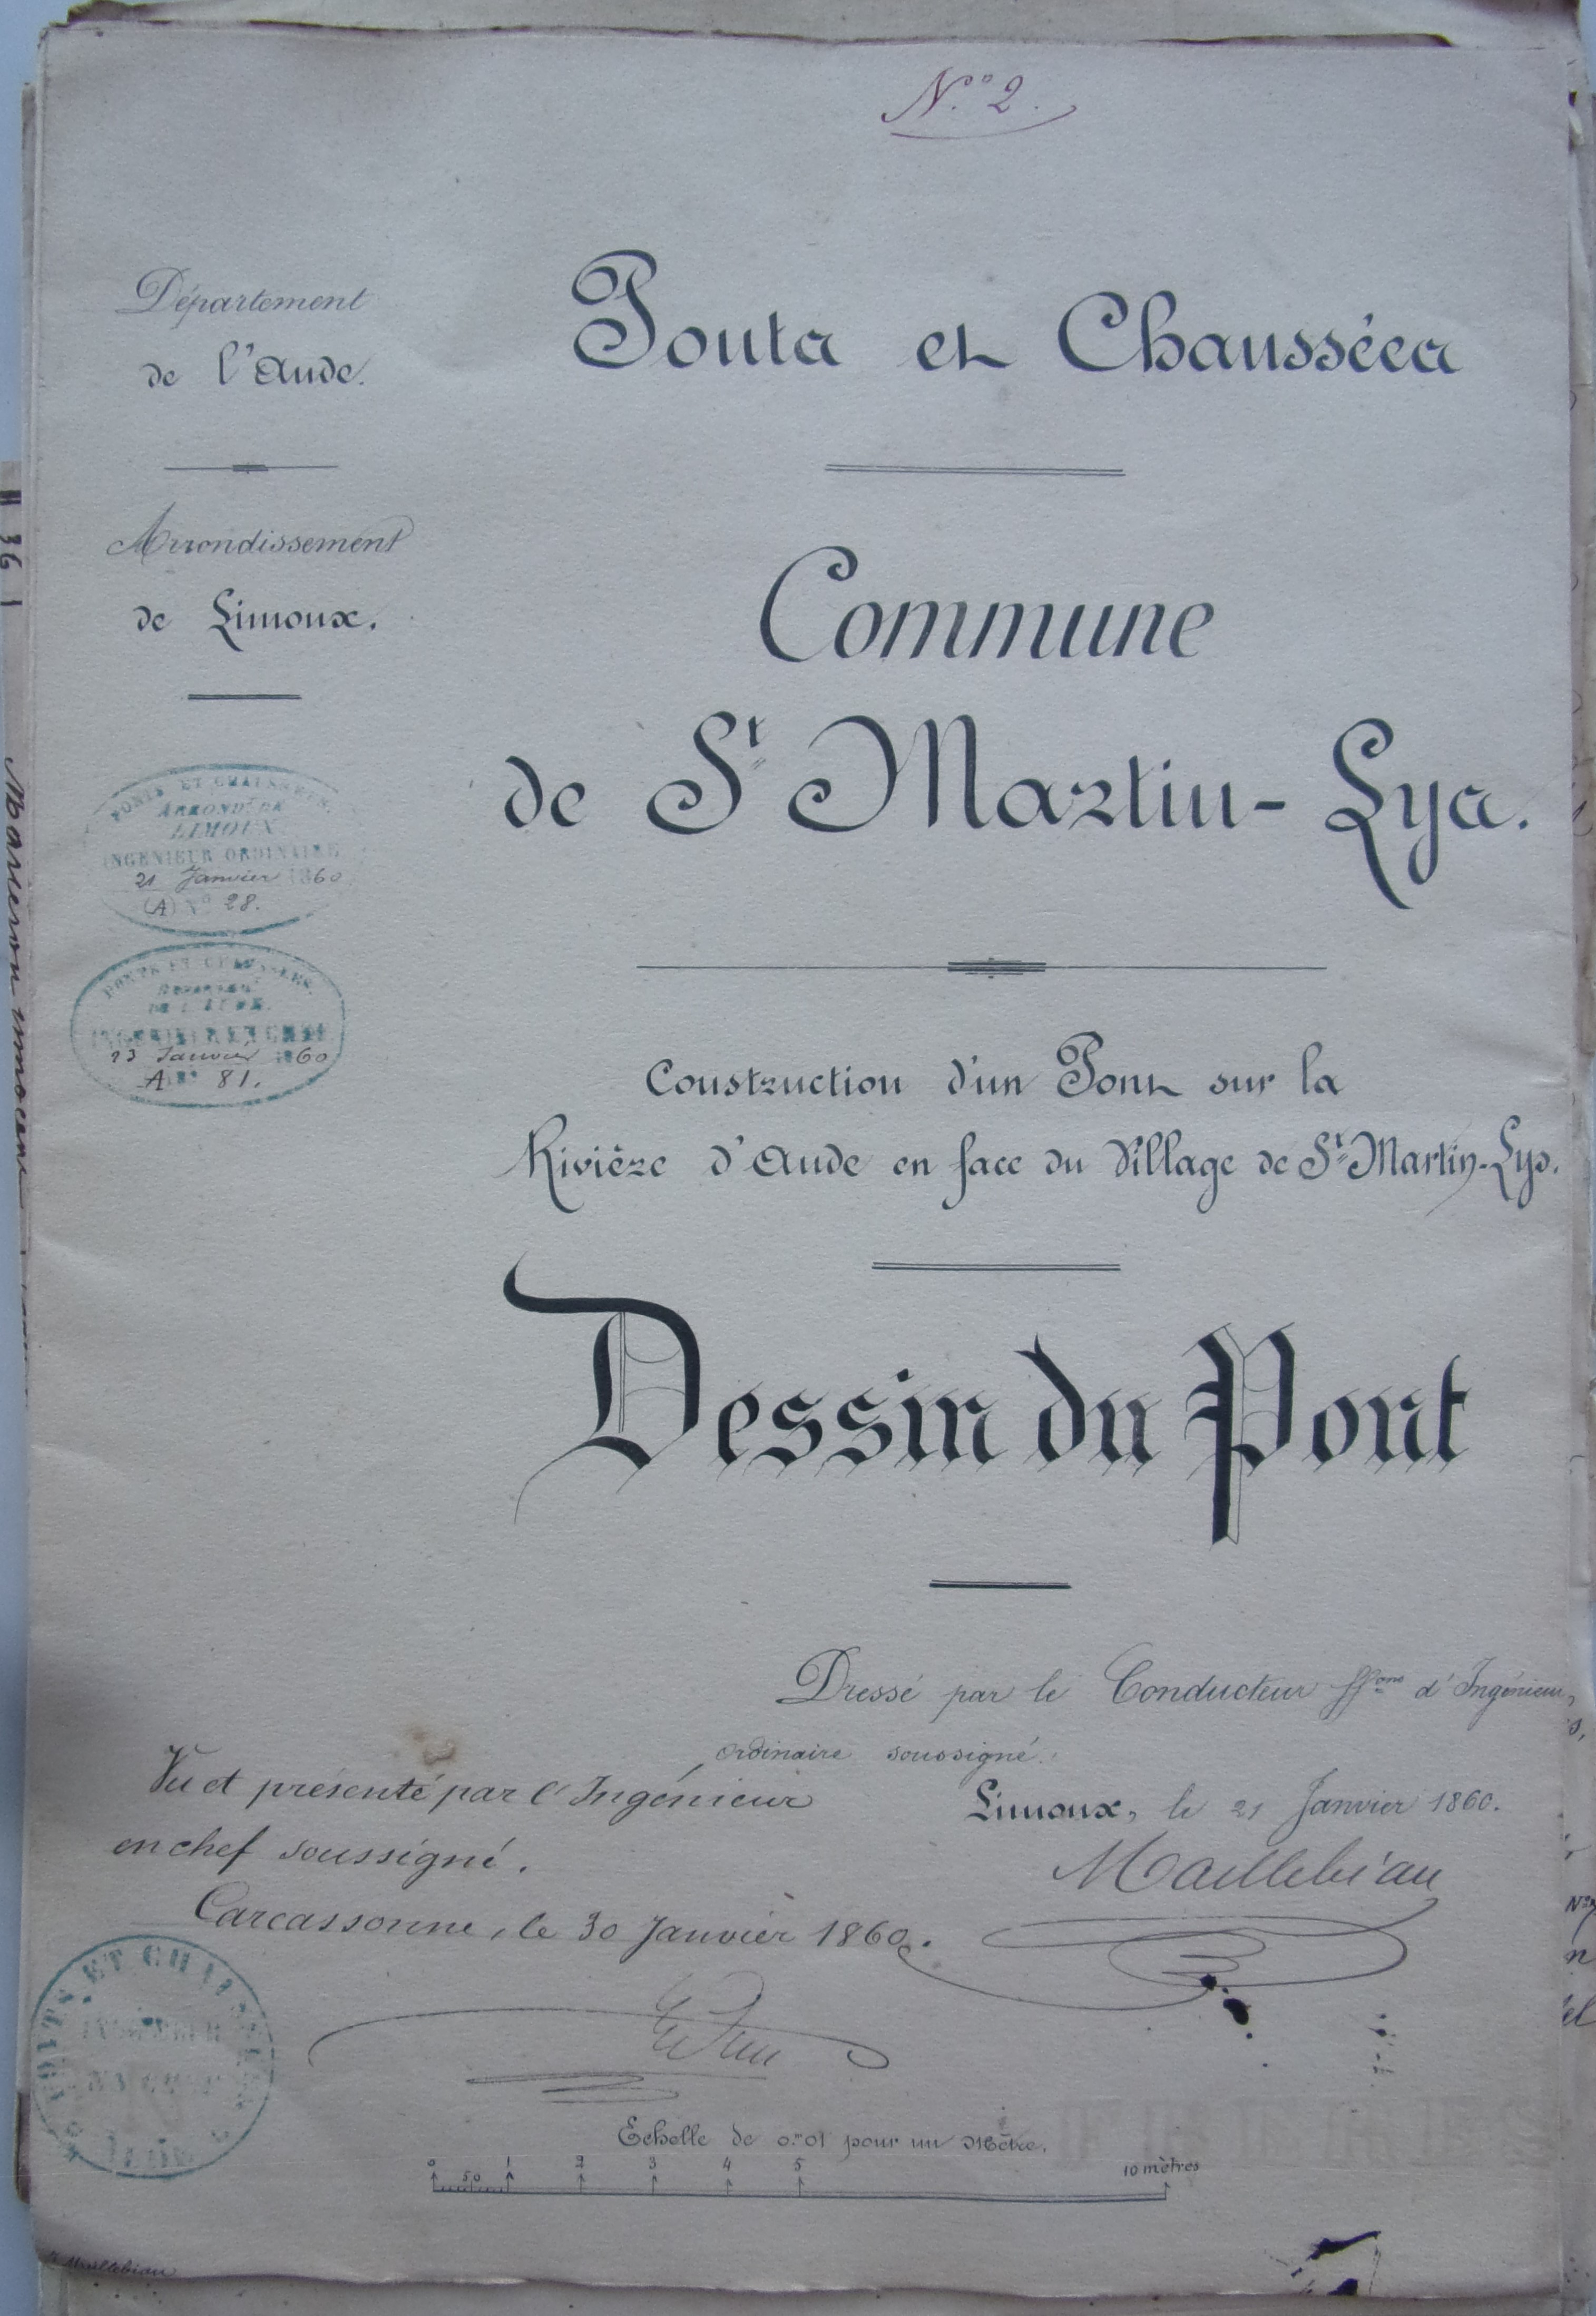 N.° 2.
Département
de l'Aude.
Arrondissement
de Limoux.
PONTS ET CHAUSSÉES.
ARROND.T DE
LIMOUX
INGÉNIEUR ORDINAIRE
21 Janvier 1860
(A) N° 28.
PONTS ET CHAUSSÉES.
DE L'AUDE.
INGÉNIEUR EN CHEF
23 Janvier 1860
A N° 81.
Ponts et Chaussées
Commune
de St Martin-Lys.
Construction d'un Pont sur la
Rivière d'Aude en face du Village de St Martin-Lys.
Dessin du Pont
Dressé par le Conducteur ffons d'Ingénieur
ordinaire soussigné.
Limoux, le 21 Janvier 1860.
Maillebiau
Vu et présenté par l'Ingénieur
en chef soussigné.
Carcassonne, le 30 Janvier 1860.
PONTS ET CHAUSSÉES
INGÉNIEUR
EN CHEF
AUDE
Echelle de 0.m01 pour un Mètre.
0 50 1 2 3 4 5 10 mètres
Maillebiau